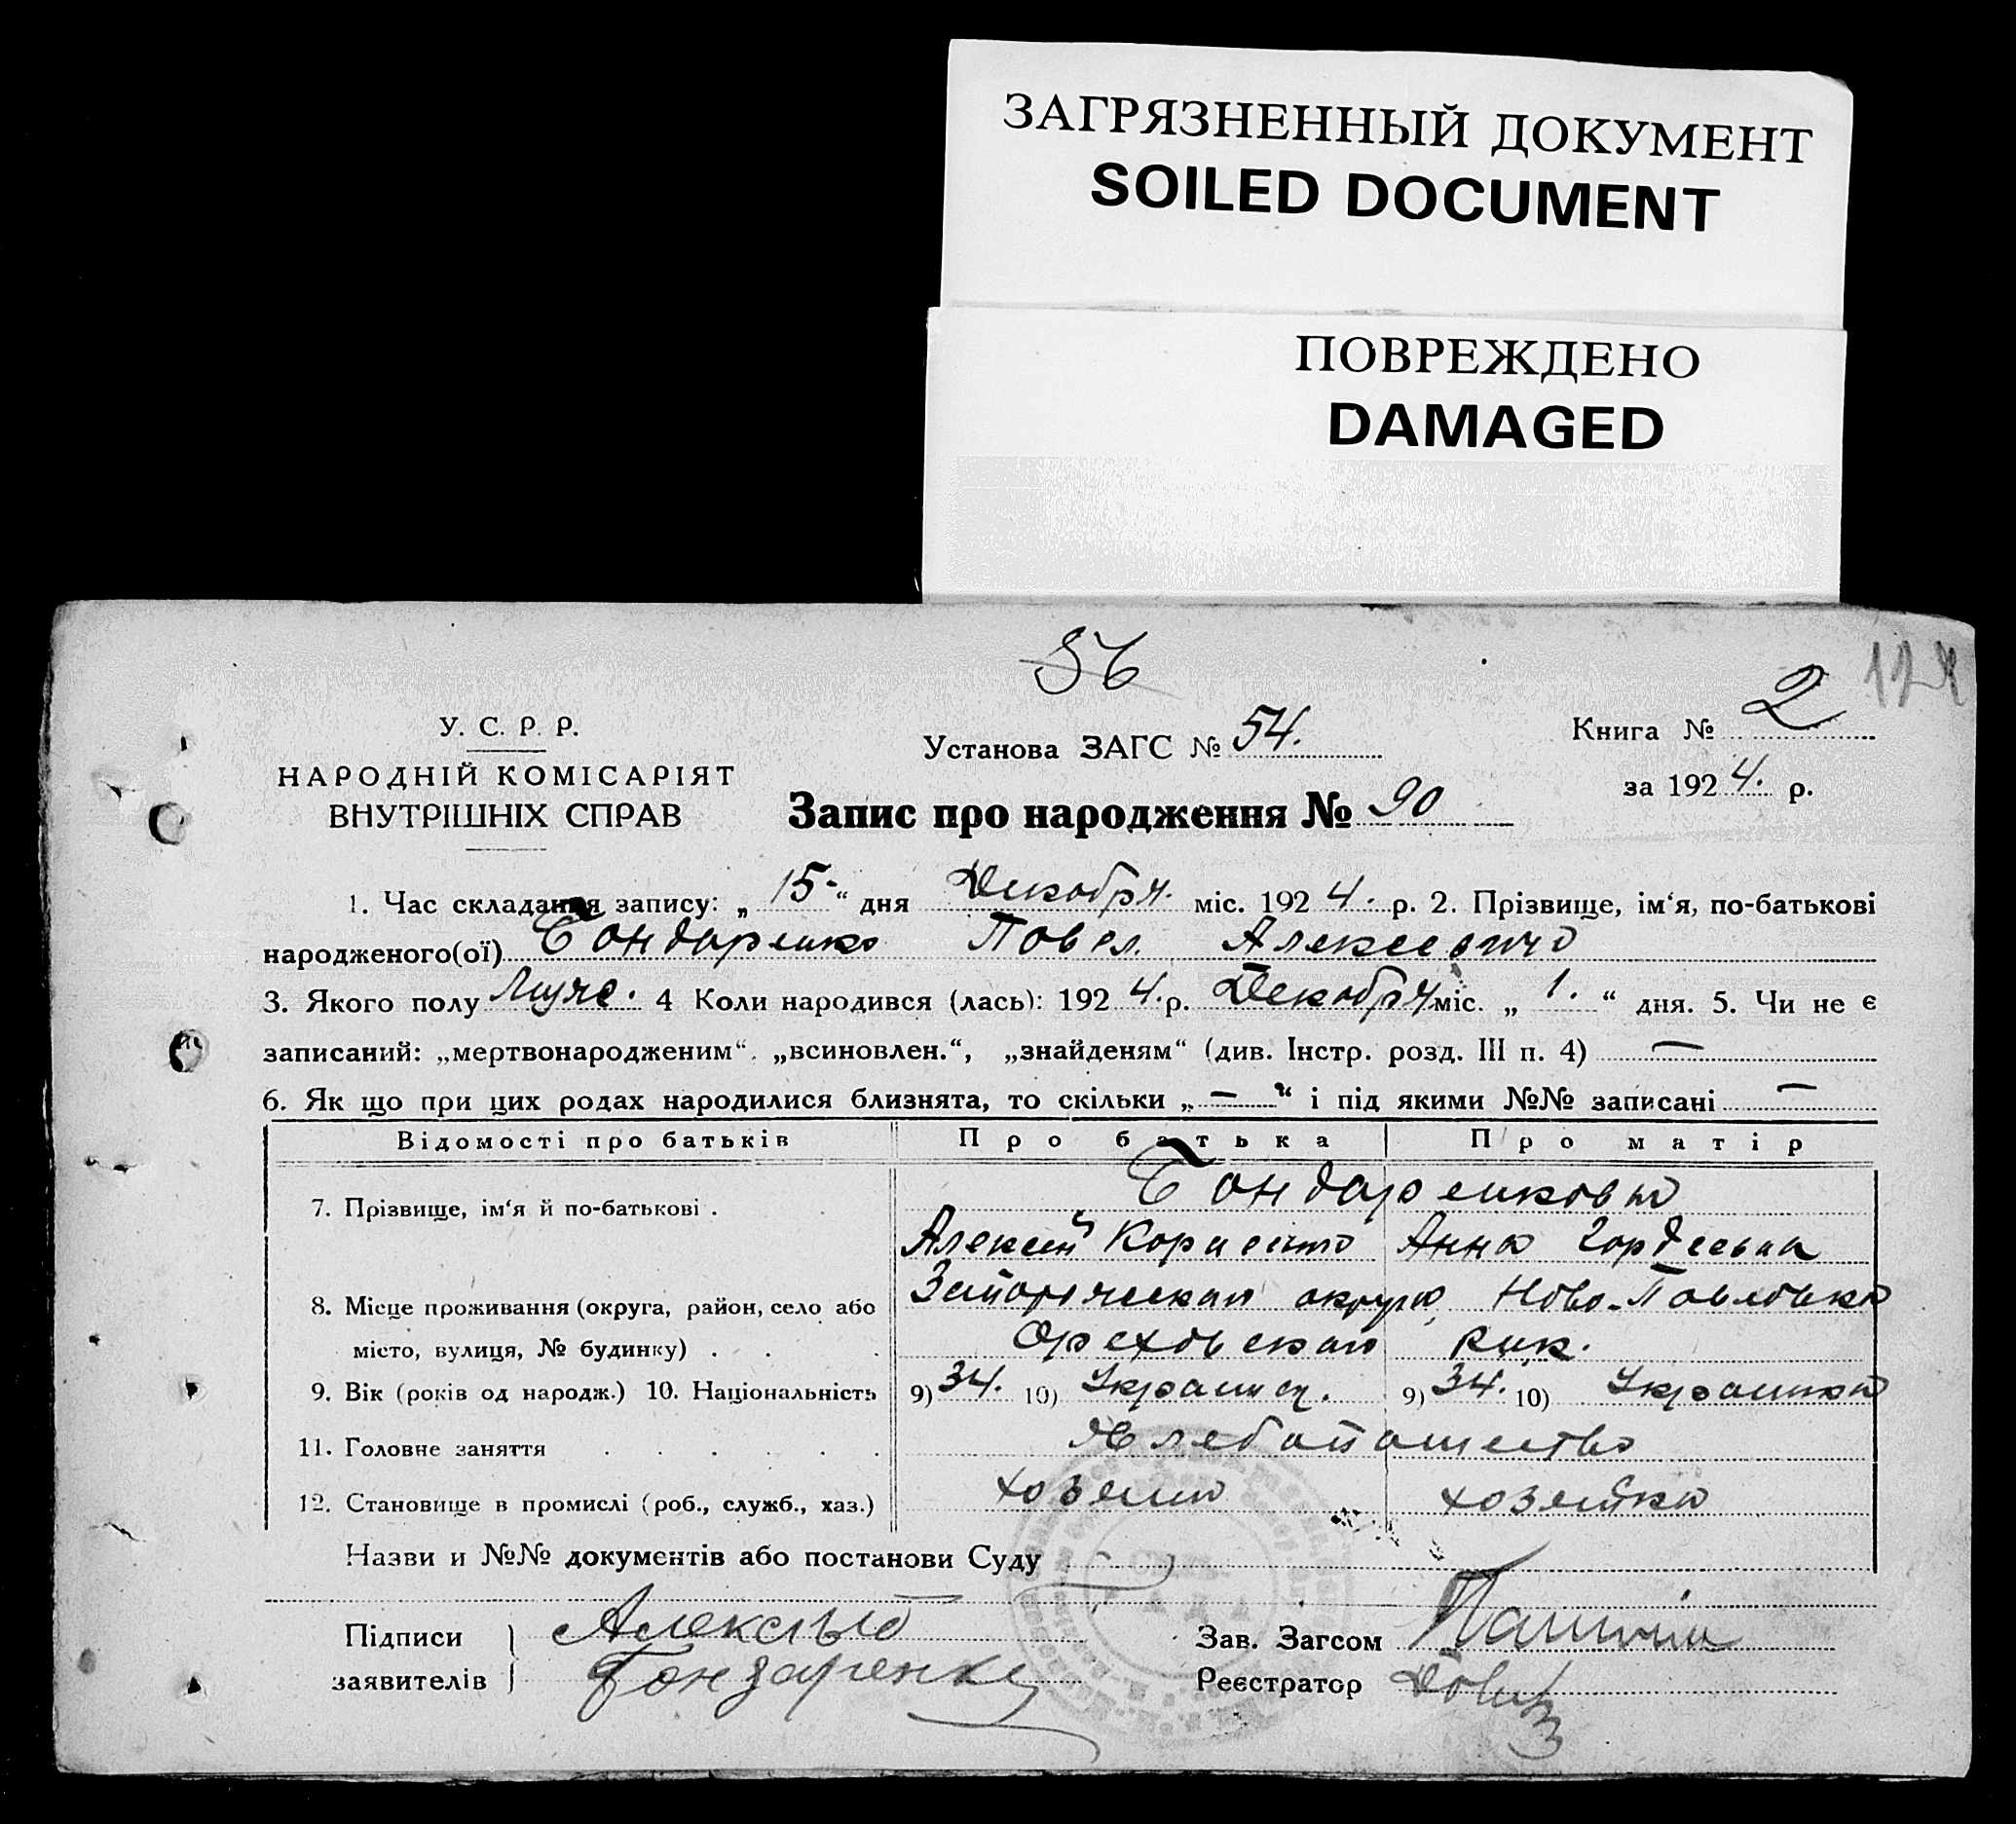 ЗАГРЯЗНЕННЫЙ ДОКУМЕНТ
SOILED DOCUMENT
ПОВРЕЖДЕНО
DAMAGED
56
У. С. Р. Р.
НАРОДНІЙ КОМІСАРІЯТ
ВНУТРІШНІХ СПРАВ
Установа ЗАГС № 54.
Книга № 2
за 1924. р.
Запис про народження № 90
1. Час складання запису: „ 15 “ дня Декабря міс. 1924. р. 2. Прізвище, ім‘я, по-батькові
народженого(ої) Бондаренко Павел Алексеевичъ
3. Якого полу Муже. 4 Коли народився (лась): 1924. р. Декабря міс. „ 1. “ дня. 5. Чи не є
записаний: „мертвонародженим“. „всиновлен.“, „знайденям“ (див. Інстр. розд. III п. 4) —
6. Як що при цих родах народилися близнята, то скільки „ — “ і під якими №№ записані —
Відомості про батьків Про батька Про матір
7. Прізвище, ім‘я й по-батькові . Бондаренковы
Алексей Анна Гордеевна
8. Місце проживання (округа, район, село або округа, Ново-Павловка
місто, вулиця, № будинку) . . . Ореховскаго Рик.
9. Вік (років од народж.) 10. Національність 9) 34. 10) Украинец. 9) 34. 10) Украинка
11. Головне заняття . . . . . . Хлебопашество
12. Становище в промислі (роб., служб., хаз.) хозяин хозяйка
Назви и №№ документів або постанови Суду
Підписи Алексей Зав. Загсом
заявителів Бондаренко Реєстратор